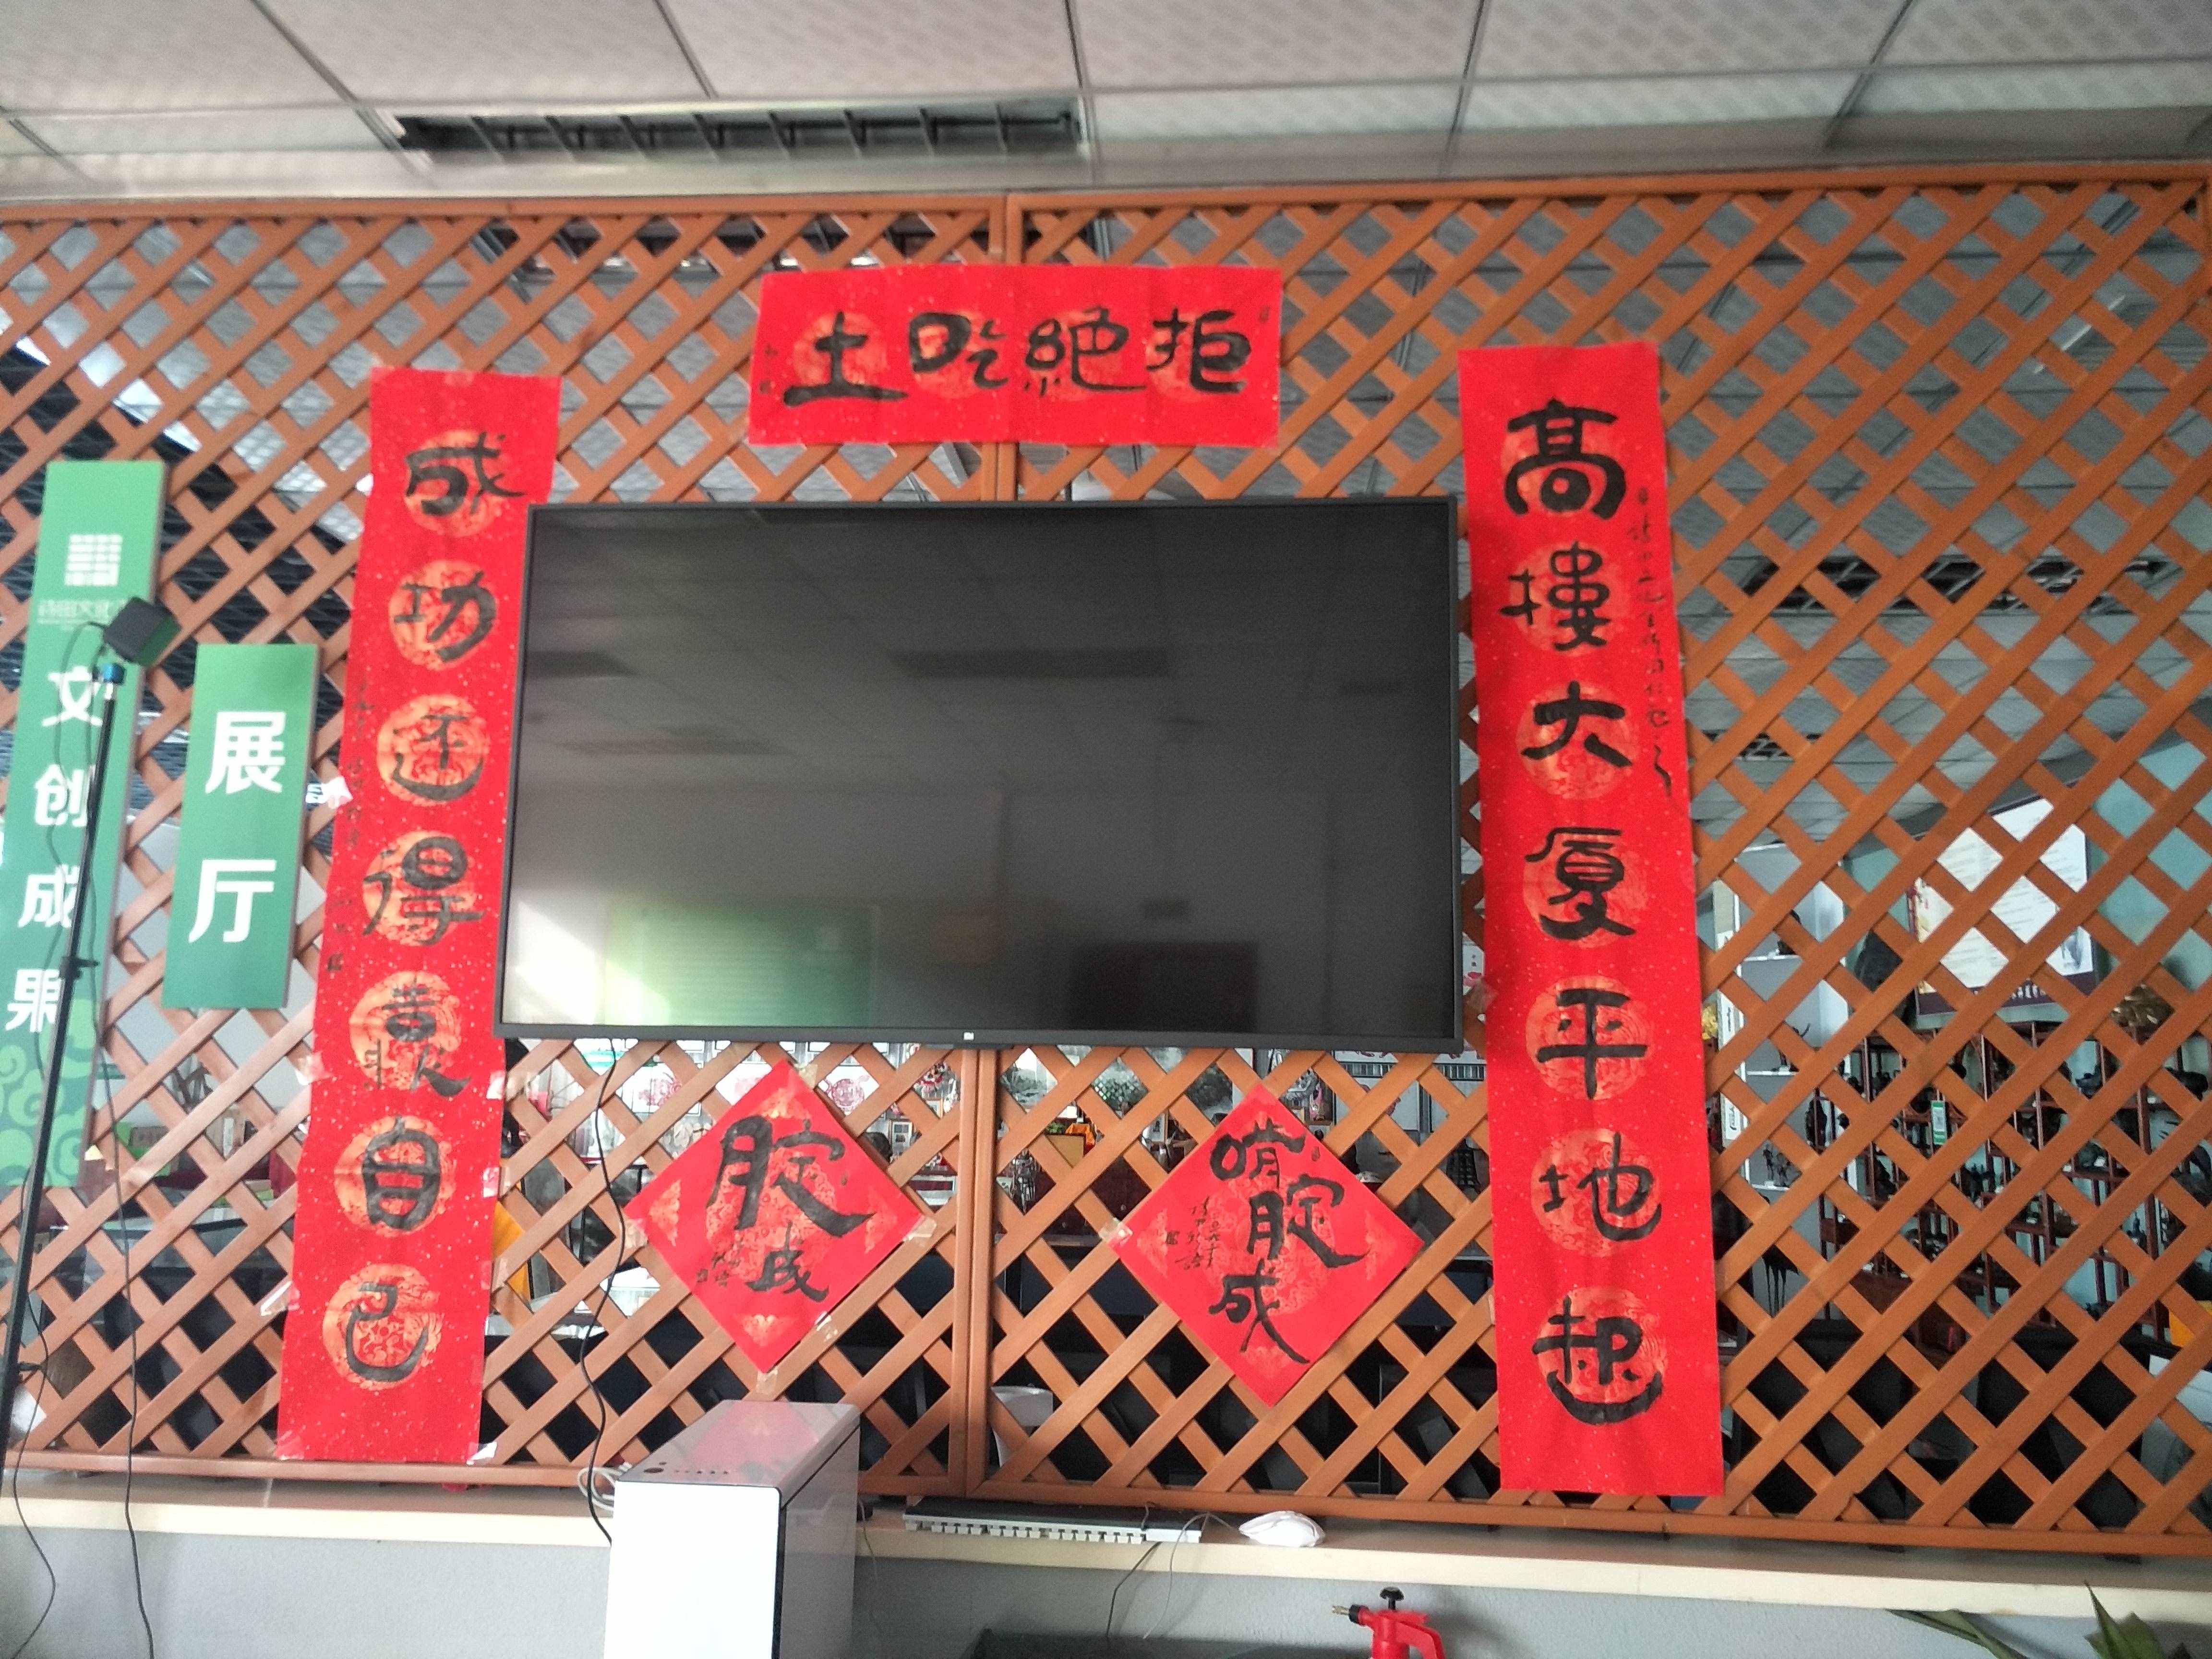 拒絕吃土
高樓大厦平地起
成功还得靠自己
啃腚成
腚成
文创成果
展厅